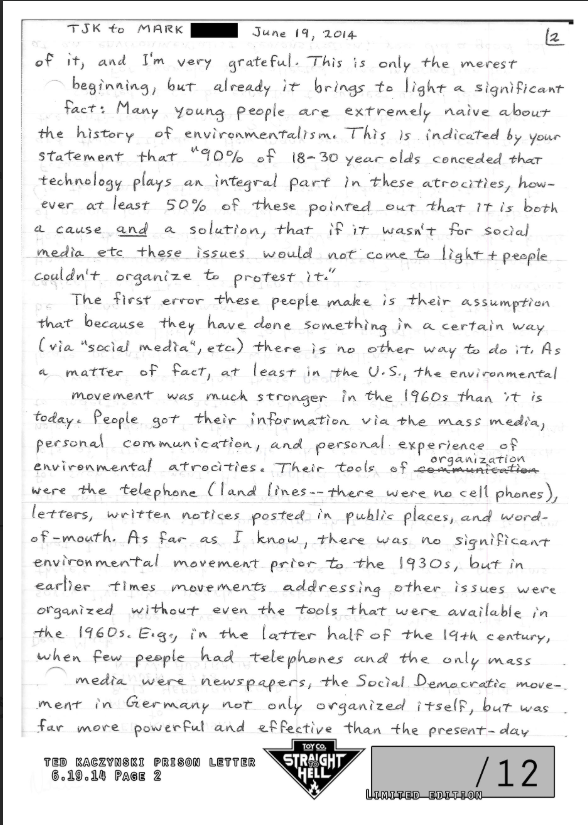 TJK to MARK June 19, 2014 2
of it, and I'm very grateful. This is only the merest
beginning, but already it brings to light a significant
fact: Many young people are extremely naive about
the history of environmentalism. This is indicated by your
statement that "90% of 18-30 year olds conceded that
technology plays an integral part in these atrocities, how-
ever at least 50% of these pointed out that it is both
a cause and a solution, that if it wasn't for social
media etc these issues would not come to light + people
couldn't organize to protest it."
The first error these people make is their assumption
that because they have done something in a certain way
(via "social media", etc.) there is no other way to do it. As
a matter of fact, at least in the U.S., the environmental
movement was much stronger in the 1960s than it is
today. People got their information via the mass media,
personal communication, and personal experience of
organization
environmental atrocities. Their tools of communication
were the telephone (land lines -- there were no cell phones),
letters, written notices posted in public places, and word-
of-mouth. As far as I know, there was no significant
environmental movement prior to the 1930s, but in
earlier times movements addressing other issues were
organized without even the tools that were available in
the 1960s. E.g., in the latter half of the 19th century,
when few people had telephones and the only mass
media were newspapers, the Social Democratic move-
ment in Germany not only organized itself, but was
far more powerful and effective than the present-day
TED KACZYNSKI PRISON LETTER
6.19.14 PAGE 2
TOY CO.
STRAIGHT
TO
HELL
/12
LIMITED EDITION